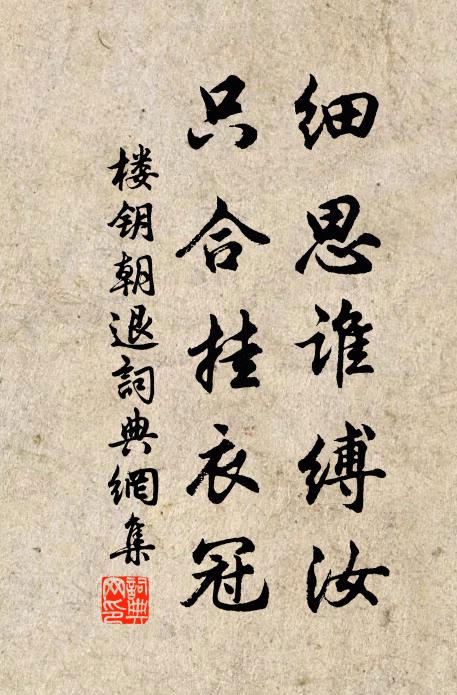 细思谁缚汝
只合挂衣冠
楼钥朝退詞典網集
詞典
网印